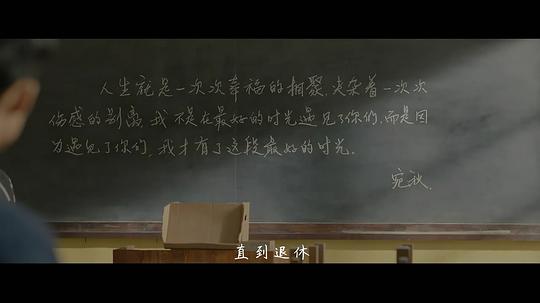 人生就是一次次幸福的相聚,夹杂着一次次
伤感的别离,我不是在最好的时光遇见了你们,而是因
为遇见了你们,我才有了这段最好的时光.
宛秋.
直到退休